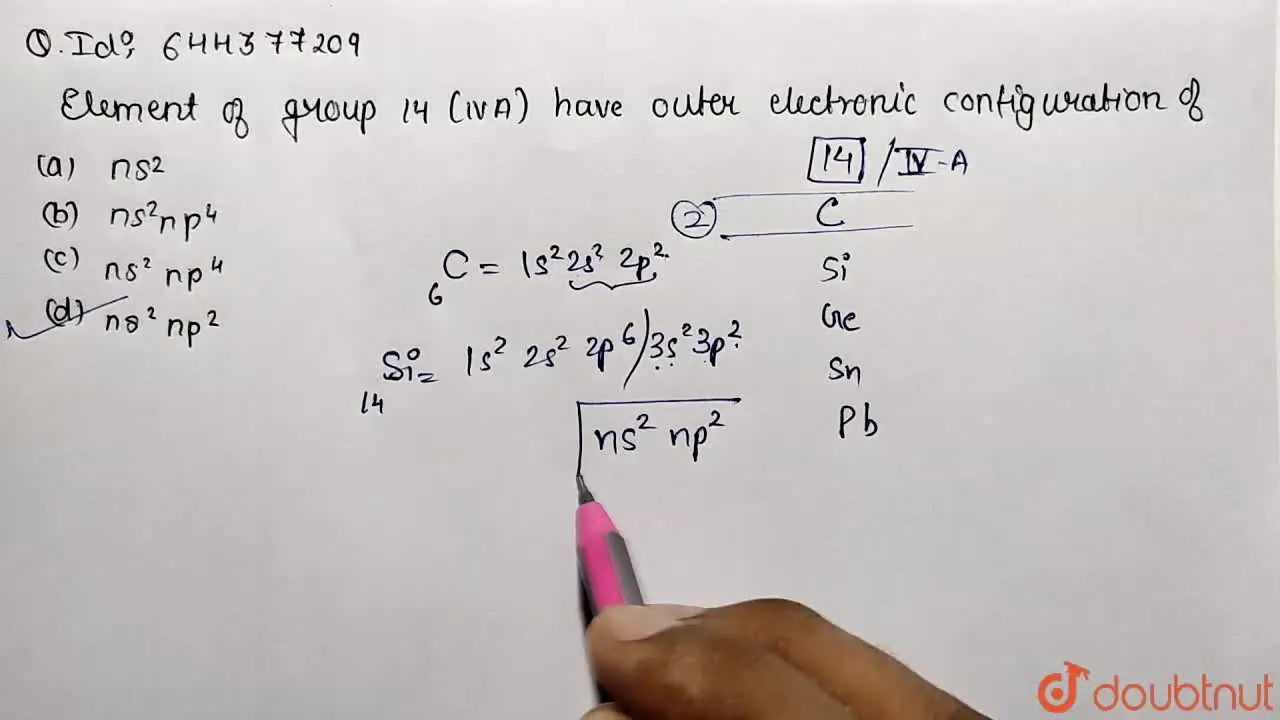 Q.Id: 644377209
Element of group 14 (IVA) have outer electronic configuration of
(a) ns²
(b) ns²np⁴
(c) ns² np⁴
(d) ns² np²
14 / IV-A
② C
Si
Ge
Sn
Pb
₆C = 1s² 2s² 2p²
₁₄Si = 1s² 2s² 2p⁶) 3s² 3p²
ns² np²
doubtnut